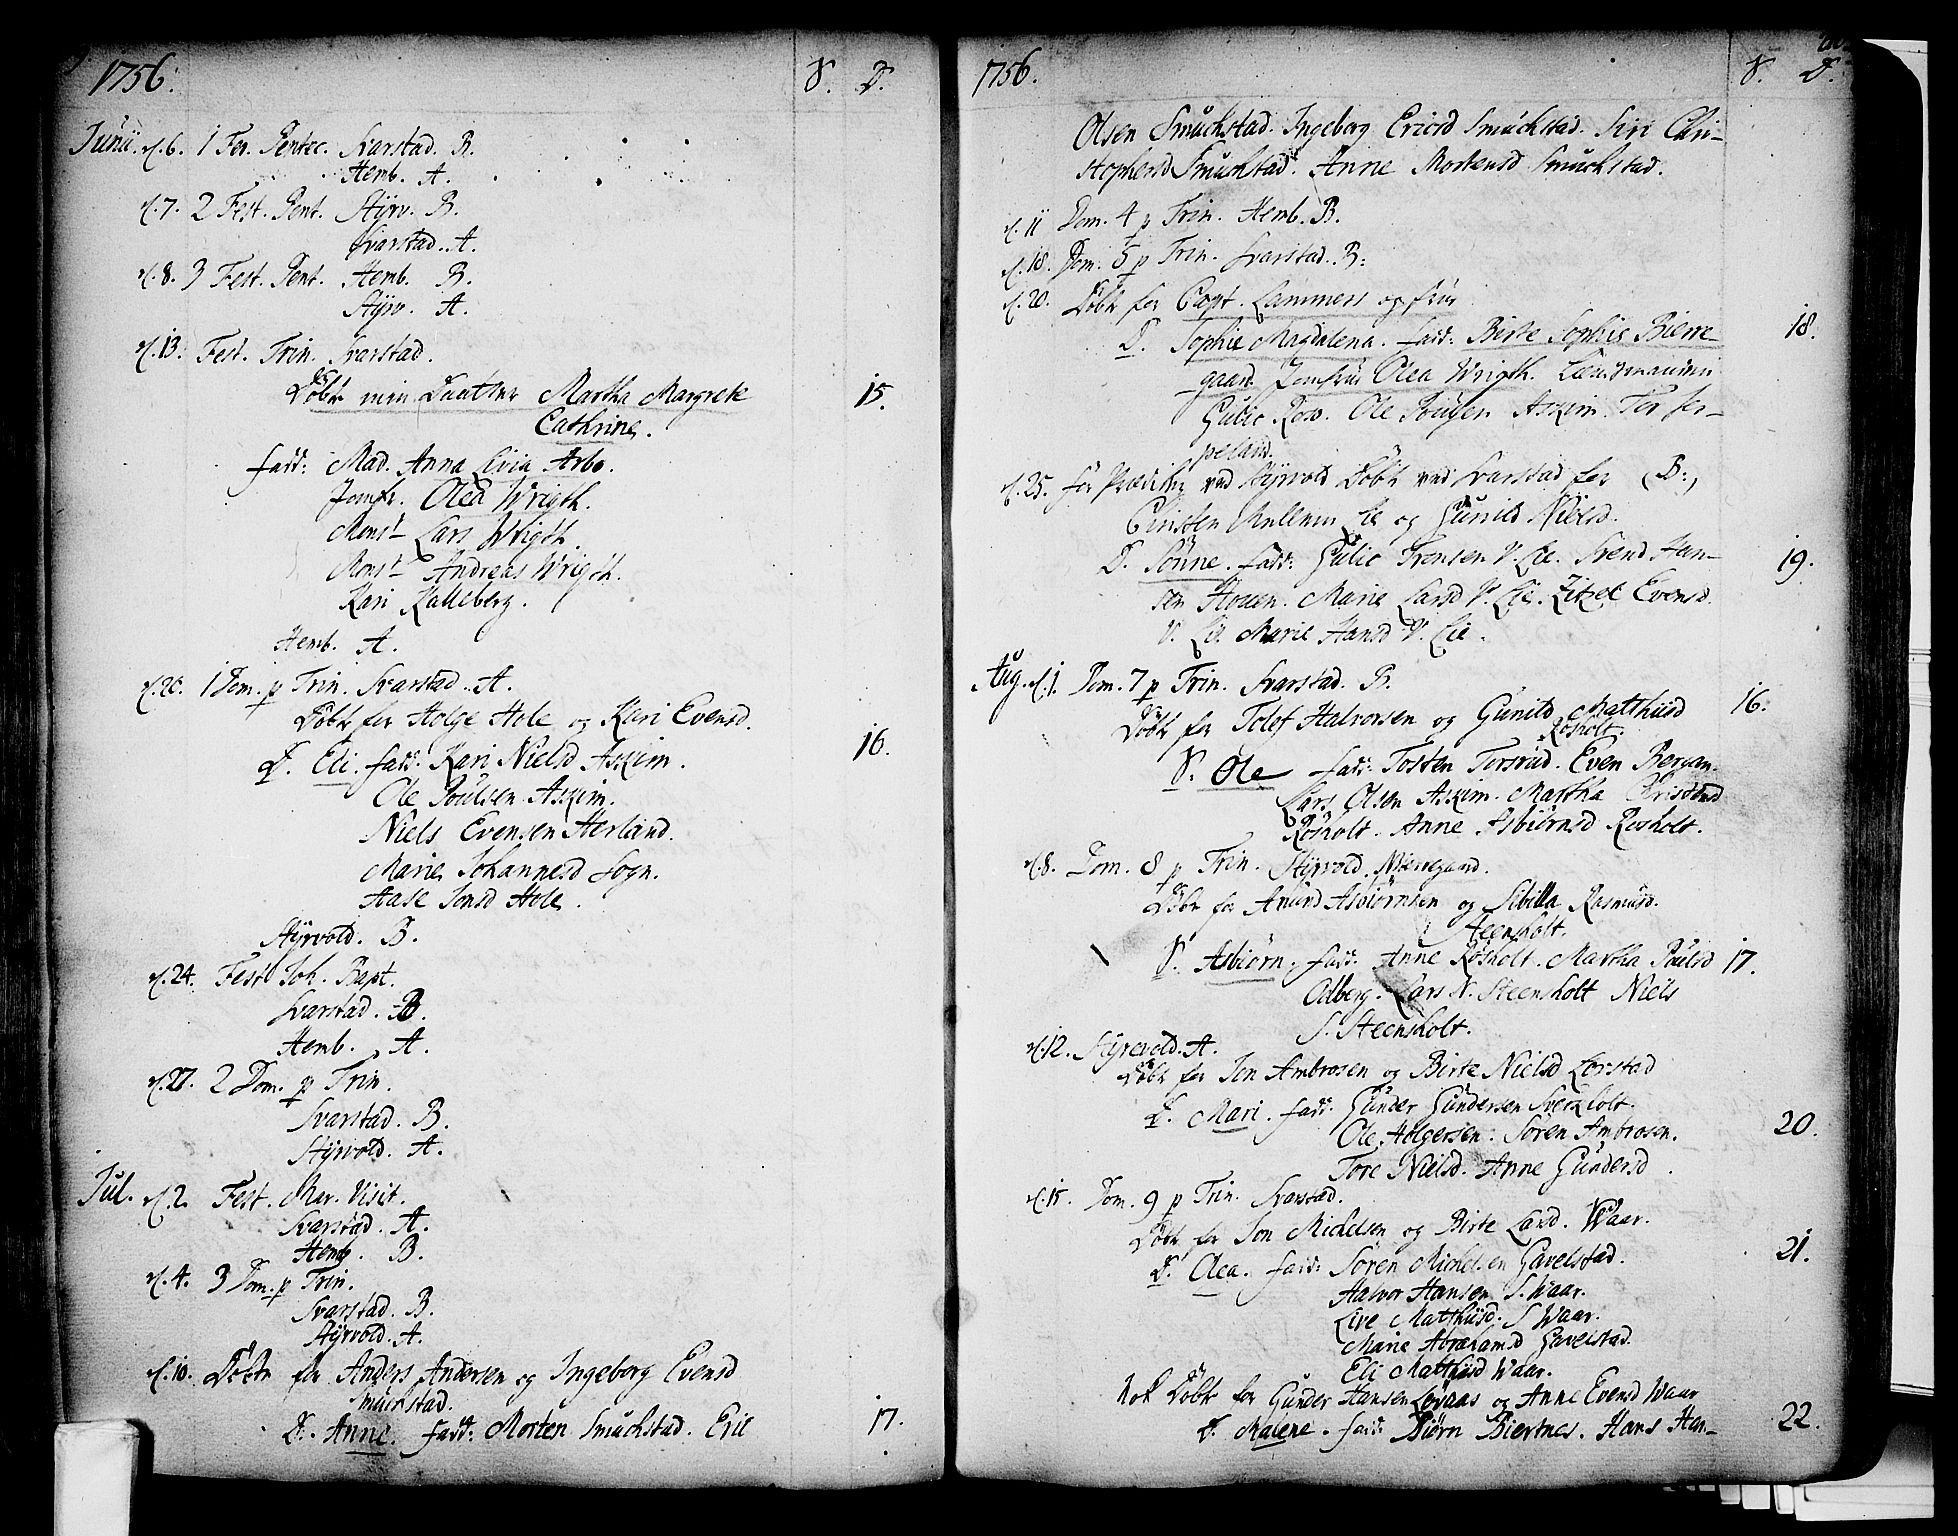 1756. S. D.
Junii. d. 6. 1 Fer. Pentec. Svarstad. B.
Hemb. A.
d. 7. 2 Fest. Pent. Styrv. B.
Svarstad. A.
d. 8. 3 Fest. Pent. Hemb. B.
Styrv. A.
d. 13. Fest. Trin. Svarstad.
Döbt min Daatter Martha Margrete 15.
Cathrine.
fadd: Mad. Anna Livia Arbo.
Jomfr. Olea Wrigth.
Monsr Lars Wrigth.
Monsr Andreas Wrigth.
Kari Kalleberg.
Hemb. A.
d. 20. 1 Dom. p Trin. Svarstad. A.
Döbt for Holge Hole og Kari Evensd.
D. Eli. fadd: Kari Nielsd Askim. 16.
Ole Poulsen Askim.
Niels Evensen Herland.
Marie Johannesd Sogn.
Aase Jonsd Hole.
Styrvold. B.
d. 24. Fest Joh. Bapt.
Svarstad. B.
Hemb. A.
d. 27. 2 Dom. p Trin.
Svarstad. B.
Styrvold. A.
Jul. d. 2 Fest. Mar. Visit.
Svarstad. A.
Hemb. B.
d. 4. 3 Dom. p Trin.
Svarstad. B.
Styrvold. A.
d. 10. Döbt for Anders Andersen og Ingeborg Evensd
Smuchstad.
D. Anne. fadd: Morten Smuchstad. Eric 17.
1756. S. D.
Olsen Smuchstad. Ingeborg Ericsd Smuchstad. Siri Chri-
stophersd Smuchstad. Anne Mortensd Smuchstad.
d. 11 Dom. 4 p Trin. Hemb. B.
d. 18. Dom. 5 p Trin. Svarstad. B:
d. 20. Döbt for Capt. Lammers og frue
D. Sophie Magdalena. fadd: Birte Sophie Bierre- 18.
gaard. Jomfru Olea Wrigth. Lieutnanten
Gulic Ross. Ole Poulsen Askim. Tor ser-
peland.
d. 25. for Prædiken ved Styrvold Döbt ved Svarstad for (B:)
Christen Mellem Lie og Gunild Nielsd.
D. Sönne. fadd: Gulic Tronsen V. Lie. Svend Han- 19.
sen Hoven. Marie Larsd V. Lie. Zitzel Evensd.
V. Lie. Marie Hansd V. Lie.
Aug. d. 1. Dom. 7 p Trin. Svarstad. B.
Döbt for Tolef Halvorsen og Gunild Matthiisd 16.
Rösholt.
S. Ole fadd: Tosten Torsrud. Even Bergan.
Lars Olsen Askim. Martha
Rösholt. Anne Asbiörnsd Rosholt.
d. 8. Dom. 8 p Trin. Styrvold.
Döbt for Anund Asbiörnsen og Sibilla Rasmusd.
Steensholt.
S. Asbiörn. fadd: Anne Rösholt. Martha Poulsd 17.
Odberg. Lars N. Steensholt Niels
S. Steensholt.
d. 12. Styrevold. A.
Döbt for Jon Ambrosen og Birte Nielsd Lorstad
D. Mari. fadd: Gunder Gundersen Sverkholt.
Ole Holgersen. Sören Ambrosen. 20.
Tore Nielsd. Anne Gundersd.
d. 15. Dom. 9 p Trin. Svarstad.
Döbt for Jon Michelsen og Birte Larsd. Waar.
D. Olea. fadd: Sören Michelsen Gavelstad. 21.
Halvor Hansen S. Waar.
Live Matthiisd. S Waar.
Marie Abrahamsd Gavelstad.
Eli Matthiisd Waar.
nok Döbt for Gunder Hansen Lövaas og Anne Evensd Waar
D. Malene. fadd: Biörn Biertnes. Hans Han- 22.